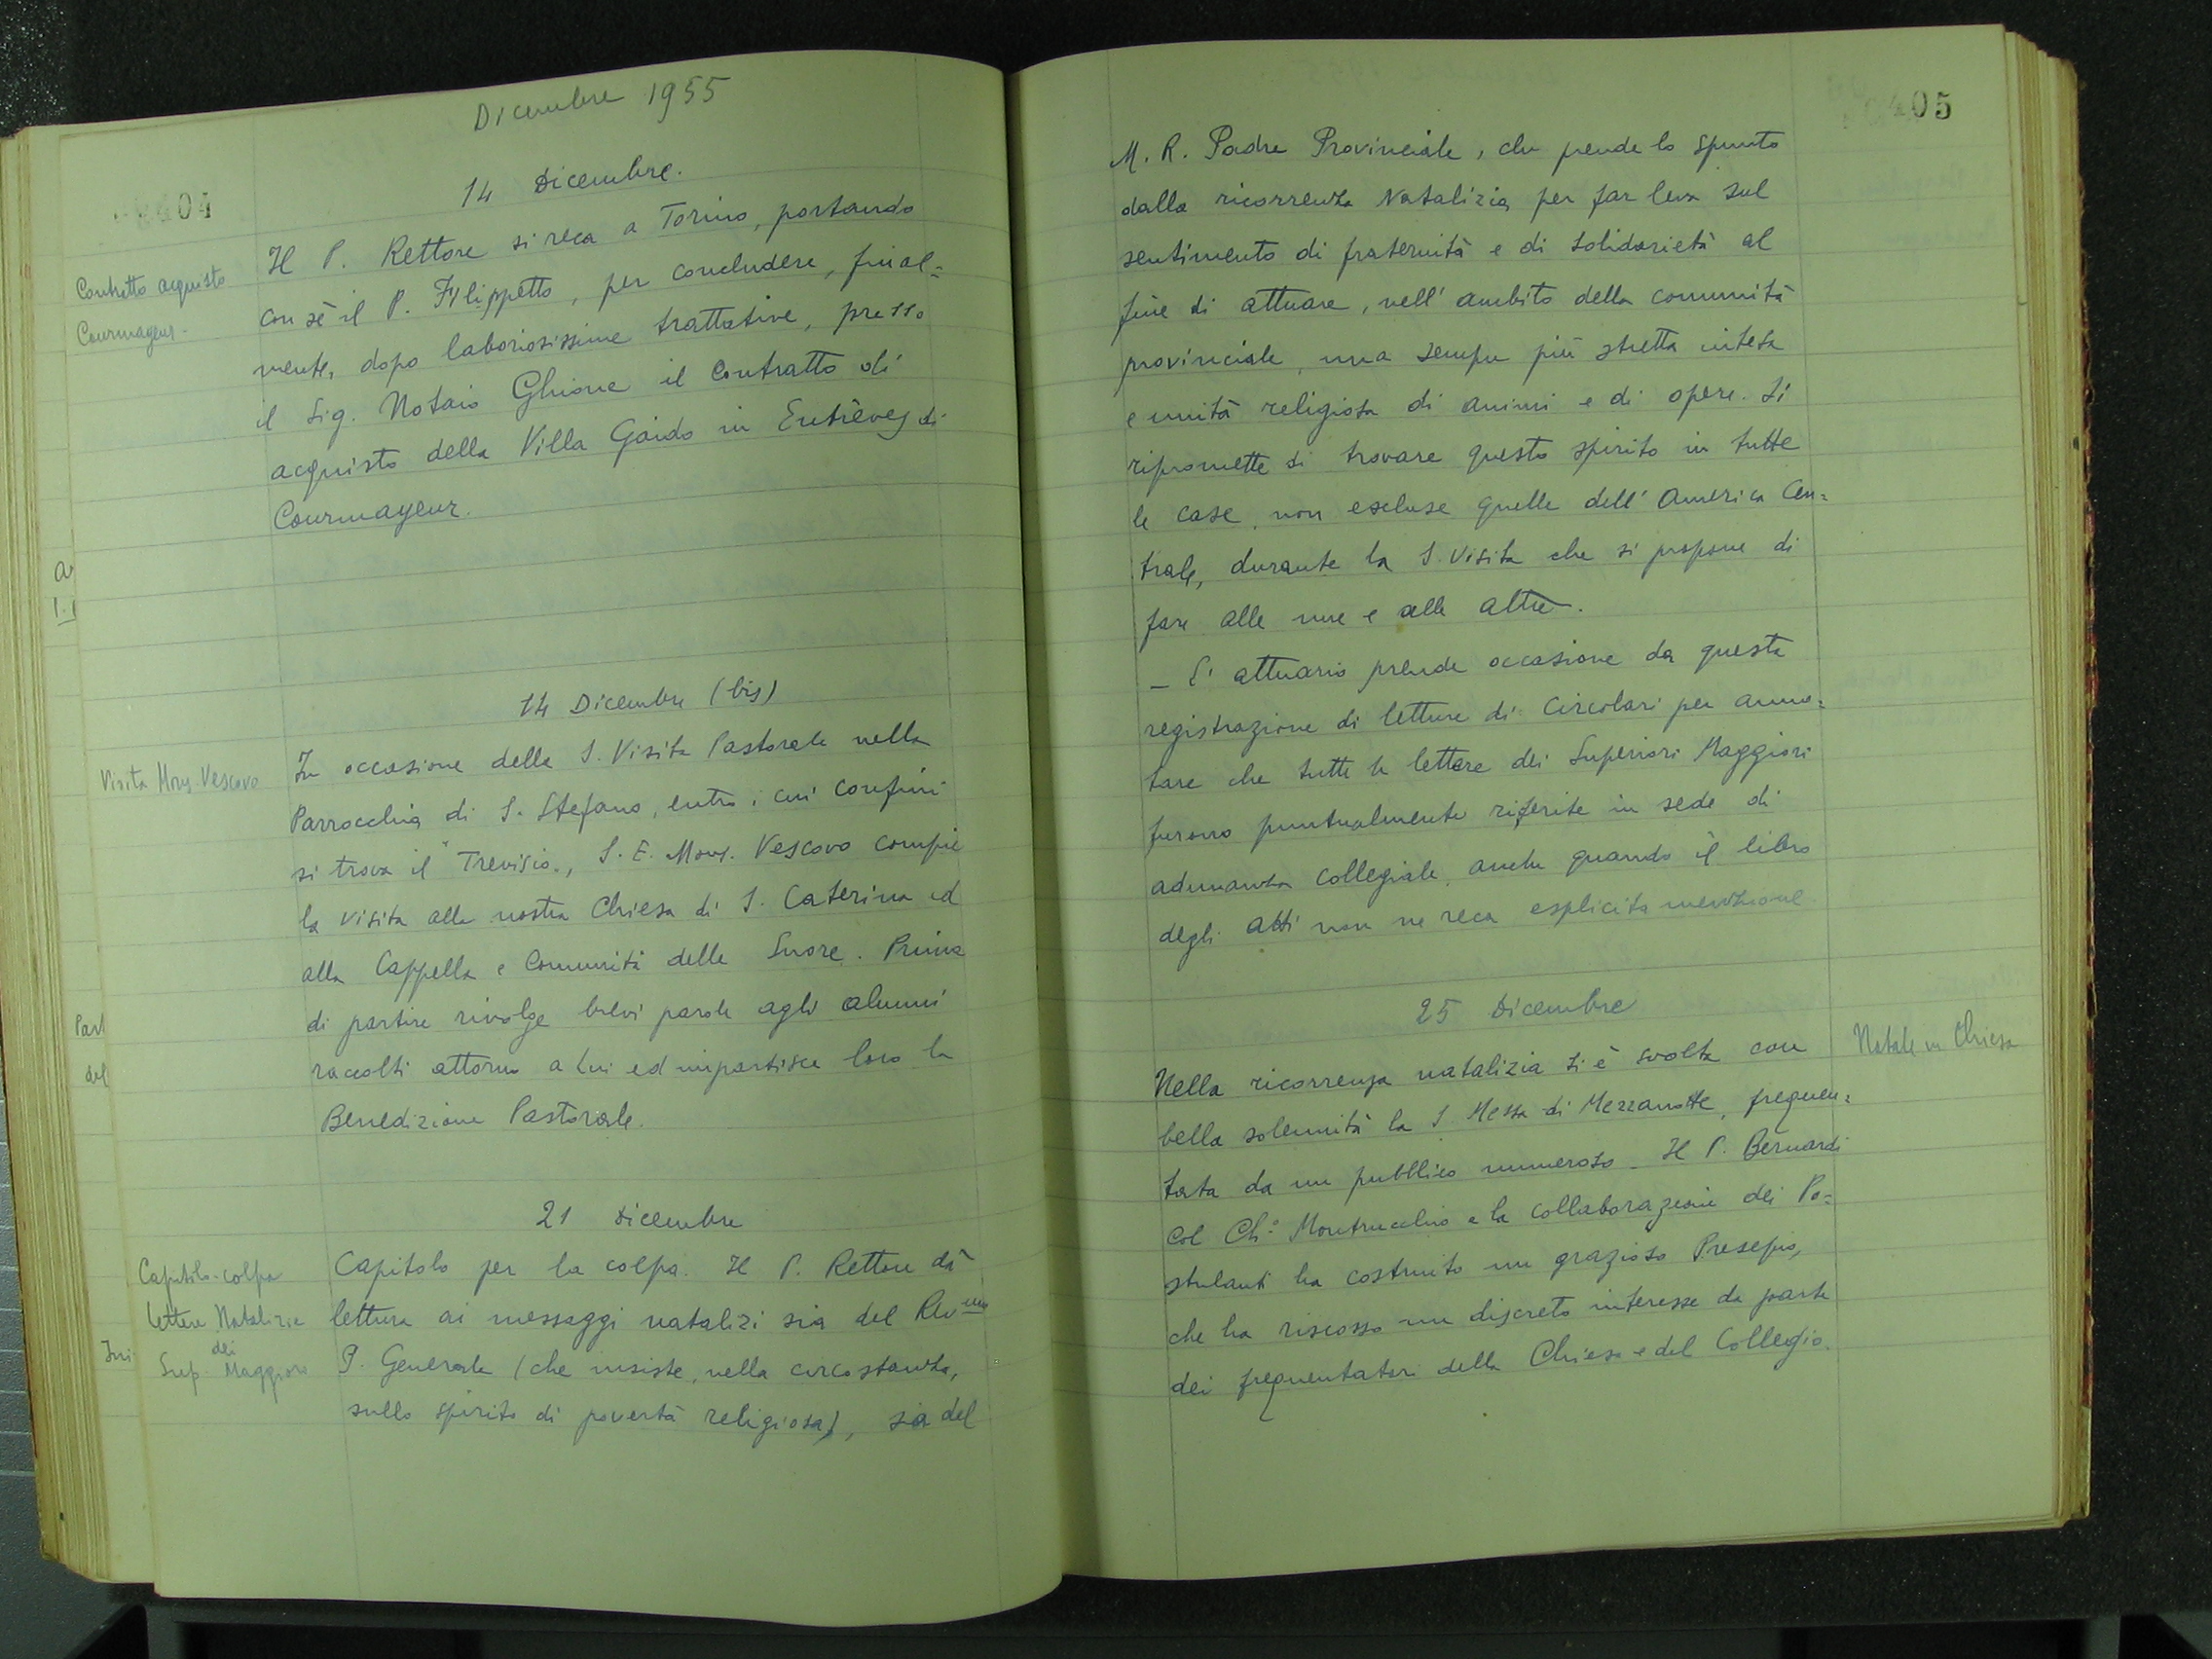 Dicembre 1955
404
14 Dicembre.
Contratto acquisto
Courmayeur.
Il P. Rettore si reca a Torino, portando
con sè il P. Filippetto, per concludere, final=
mente, dopo laboriosissime trattative, presso
il Sig. Notaio Ghione il Contratto di
acquisto della Villa Gaido in Entrèves di
Courmayeur.
14 Dicembre (bis)
Visita Mons. Vescovo
In occasione della S. Visita Pastorale nella
Parrocchia di S. Stefano, entro i cui confini
si trova il "Trevisio", S. E. Mons. Vescovo compie
la visita alla nostra Chiesa di S. Caterina ed
alla Cappella e Comunità delle Suore. Prima
di partire rivolge brevi parole agli alunni
raccolti attorno a Lui ed impartisce loro la
Benedizione Pastorale.
21 Dicembre
Capitolo-colpa
Lettere Natalizie
dei
Sup. Maggiori
Capitolo per la colpa. Il P. Rettore dà
lettura ai messaggi natalizi sia del Rev.mo
P. Generale (che insiste, nella circostanza,
sullo spirito di povertà religiosa), sia del
405
M. R. Padre Provinciale, che prende lo spunto
dalla ricorrenza Natalizia per far leva sul
sentimento di fraternità e di solidarietà al
fine di attuare, nell'ambito della comunità
provinciale, una sempre più stretta intesa
e unità religiosa di animi e di opere. Si
ripromette di trovare questo spirito in tutte
le case, non escluse quelle dell'America Cen=
trale, durante la S. Visita che si propone di
fare alle une e alle altre.
- L'attuario prende occasione da questa
registrazione di letture di Circolari per anno=
tare che tutte le lettere dei Superiori Maggiori
furono puntualmente riferite in sede di
adunanza collegiale, anche quando il libro
degli Atti non ne reca esplicita menzione.
25 Dicembre
Natale in Chiesa
Nella ricorrenza natalizia si è svolta con
bella solennità la S. Messa di Mezzanotte, frequen=
tata da un pubblico numeroso - Il P. Bernardi
col Ch.o Montrucchio e la collaborazione dei Po=
stulanti ha costruito un grazioso Presepio,
che ha riscosso un discreto interesse da parte
dei frequentatori della Chiesa e del Collegio.